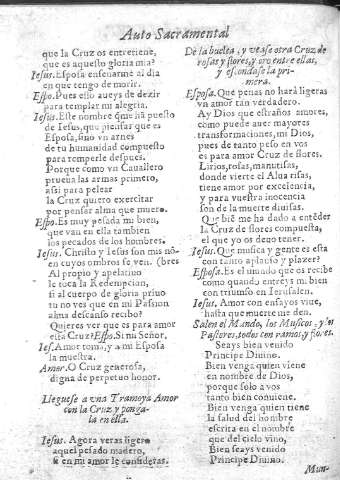 Auto Sacramental
que la Cruz os entretiene,
que es aquesto gloria mia?
Iesus. Esposa enseñarme el dia
en que tengo de morir.
Espo. Pues esso aueys de dezir
para templar mi alegria.
Iesus. Este nombre que ha puesto
de Iesus, que piensas que es
Esposa, sino vn arnes
de tu humanidad compuesto
para romperle despues.
Porque como vn Cauallero
prueua las armas primero,
assi para pelear
la Cruz quiero exercitar
por pensar alma que muero.
Espo. Es muy pesada mi bien,
que van en ella tambien
los pecados de los hombres.
Iesus. Christo y Iesus son mis nõ-
en cuyos ombros se ven. (bres
Al propio y apelatiuo
le toca la Redempcion,
si al cuerpo de gloria priuo
tu no ves que en mi Passion
alma descanso recibo?
Quieres ver que es para amor
esta Cruz? Espo. Si mi Señor,
Ies. Amor toma, y a mi Esposa
la muestra.
Amor. O Cruz generosa,
digna de perpetuo honor.
Lleguese a vna Tramoya Amor
con la Cruz y ponga-
la en ella.
Iesus. Agora veras ligero
aquel pesado madero,
si en mi amor le consideras.
De la buelta, y vease otra Cruz de
rosas y flores, y oro entre ellas,
y escondase la pri-
mera.
Esposa. Que penas no hará ligeras
vn amor tan verdadero.
Ay Dios que estraños amores,
como puede auer mayores
transformaciones, mi Dios,
pues de tanto peso en vos
es para amor Cruz de flores.
Lirios, rosas, manutisas,
donde vierte el Alua risas,
tiene amor por excelencia,
y para vuestra inocencia
son de la muerte diuisas.
Que biẽ me ha dado a entẽder
la Cruz de flores compuesta,
el que yo os deuo tener.
Iesus. Que musica y gente es esta
con tanto aplauso y plazer?
Esposa. Es el mundo que os recibe
como quando entreys mi bien
con triumfo en Ierusalen.
Iesus. Amor con ensayos viue,
hasta que muerte me den.
Salen el Mundo, los Musicos, y los
Pastores, todos con ramos, y flores.
Seays bien venido
Principe Diuino.
Bien venga quien viene
en nombre de Dios,
porque solo a vos
tanto bien conuiene.
Bien venga quien tiene
la salud del hombre
escrita en el nombre
que del cielo vino,
Bien seays venido
Principe Diuino.
Mun-